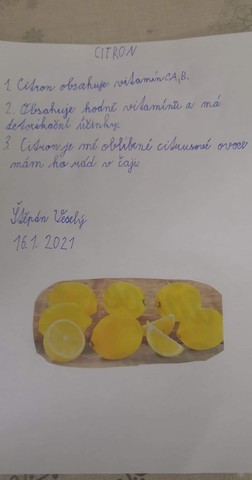 CITRON
1. Citron obsahuje vitamín C,A,B.
2. Obsahuje hodně vitamínů a má
detoxikační účinky.
3. Citron je mé oblíbené citrusové ovoce
mám ho rád v čaji.
Štěpán Veselý
16.1. 2021